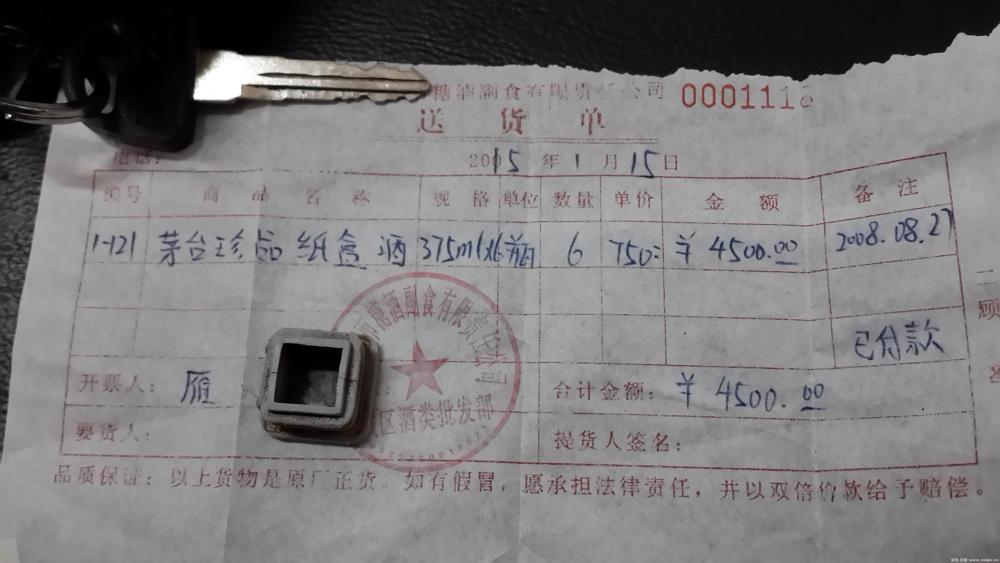 糖酒副食有限责任公司 0001118
送货单
电话:
2015年1月15日
编号 商品名称 规格 单位 数量 单价 金额 备注
1-121 茅台珍品纸盒酒 375ml×6 瓶 6 750- ¥4500.00 2008.08.27
已付款
开票人: 雁 合计金额: ¥4500.00
要货人: 提货人签名:
糖酒副食有限责任公司
区酒类批发部
品质保证:以上货物是原厂正货。如有假冒,愿承担法律责任,并以双倍价款给予赔偿。